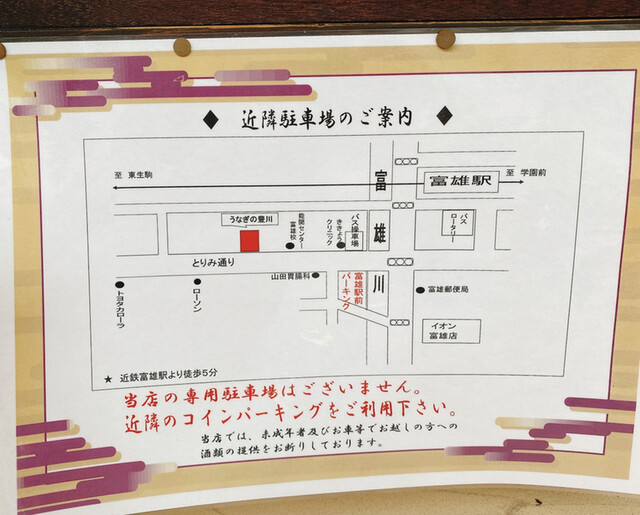 ◆ 近隣駐車場のご案内 ◆
至 東生駒
富雄駅
至 学園前
富雄川
うなぎの豊川
能開センター
富雄校
ききょう
クリニック
バス操車場
バス
ロータリー
とりみ通り
山田胃腸科
富雄駅前
パーキング
富雄郵便局
トヨタカローラ
ローソン
イオン
富雄店
★ 近鉄富雄駅より徒歩5分
当店の専用駐車場はございません。
近隣のコインパーキングをご利用下さい。
当店では、未成年者及びお車等でお越しの方への
酒類の提供をお断りしております。